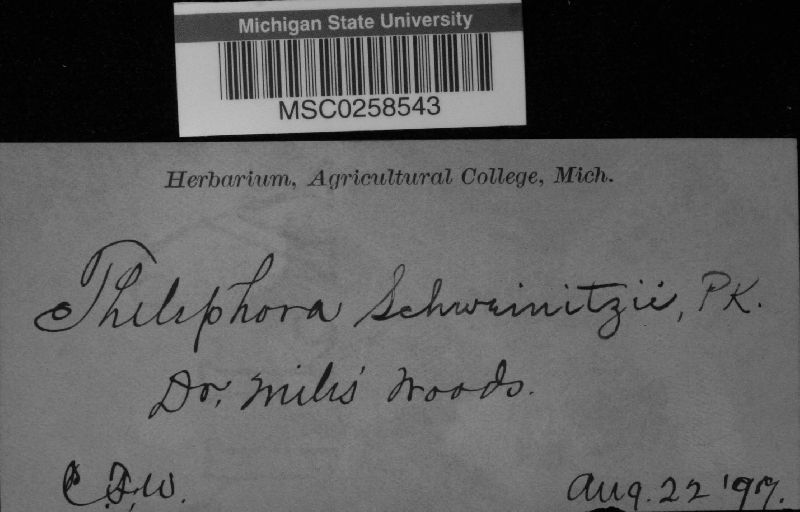 Michigan State University
MSC0258543
Herbarium, Agricultural College, Mich.
Thelephora Schweinitzii, PK.
Dr. Miles' Woods.
C. F. W.
Aug. 22 '97.